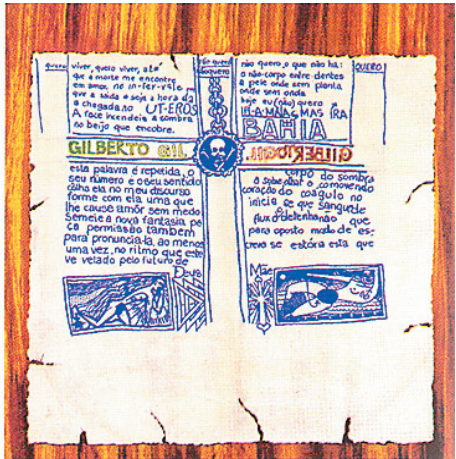 quero viver, quero viver, até
que a morte me encontre
em amor, no in-fer-relo
que a saída e seja a hora da
a chegada no UT-EROS
A face incendeia a sombra
no beijo que encobre.
não quero
quero
não quero o que não há:
o não-corpo entre dentes
a pele onde sem planta
onde sem onda
hoje eu(não)quero
MAS IRA
BAHIA
QUERO
GILBERTO GIL
GILBERTO GIL
esta palavra é repetida, o
seu número e o seu sentido
calha ela no meu discurso
forme com ela uma que
lhe cause amôr sem medo
semeie a nova fantasia pe
ça permissão tambem
para pronuncia-la, ao menos
uma vez, no ritmo que este
ve velado pelo futuro de
Deus
corpo do sombra
o sobe comovendo
coração do coagulo no
inicia ce que sangue de
flux d'delenha não que
para oposto modo de es-
crevo se estória esta que
Mãe